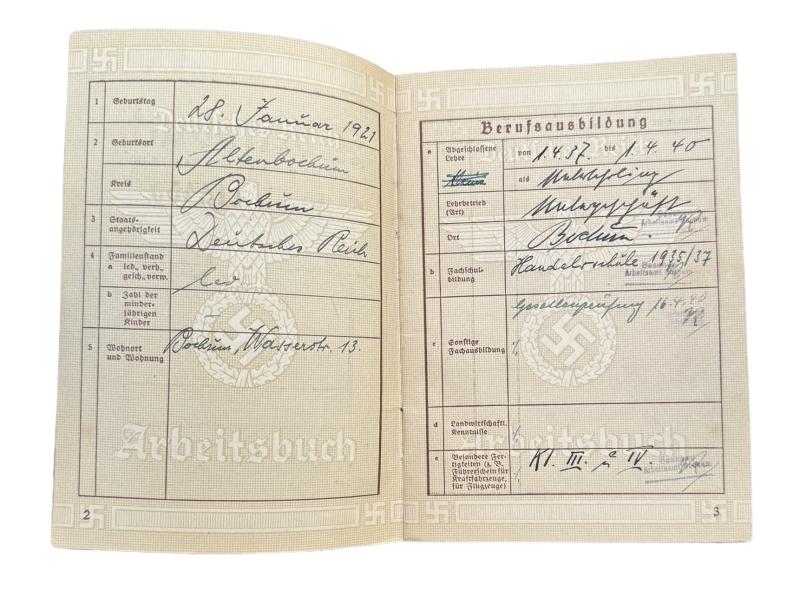 Deutsches Reich
1 Geburtstag 28. Januar 1921
2 Geburtsort Altenbochum
Kreis Bochum
3 Staats-
angehörigkeit Deutsches Reich
4 Familienstand
a led., verh.,
gesch., verw. led
b Zahl der
minder-
jährigen
Kinder
5 Wohnort
und Wohnung Bochum, Wasserstr. 13.
Arbeitsbuch
2
Berufsausbildung
a Abgeschlossene
Lehre von 1.4.37. bis 1.4.40
als Malerlehrling
Lehrbetrieb
(Art) Malergeschäft
Ort Bochum.
b Fachschul-
bildung Handelsschule 1935/37
Gesellenprüfung 16.4.40
c Sonstige
Fachausbildung
d Landwirtschaftl.
Kenntnisse
e Besondere Fer-
tigkeiten (z. B.
Führerschein für
Kraftfahrzeuge,
für Flugzeuge) Kl. III. u IV.
Arbeitsbuch
3